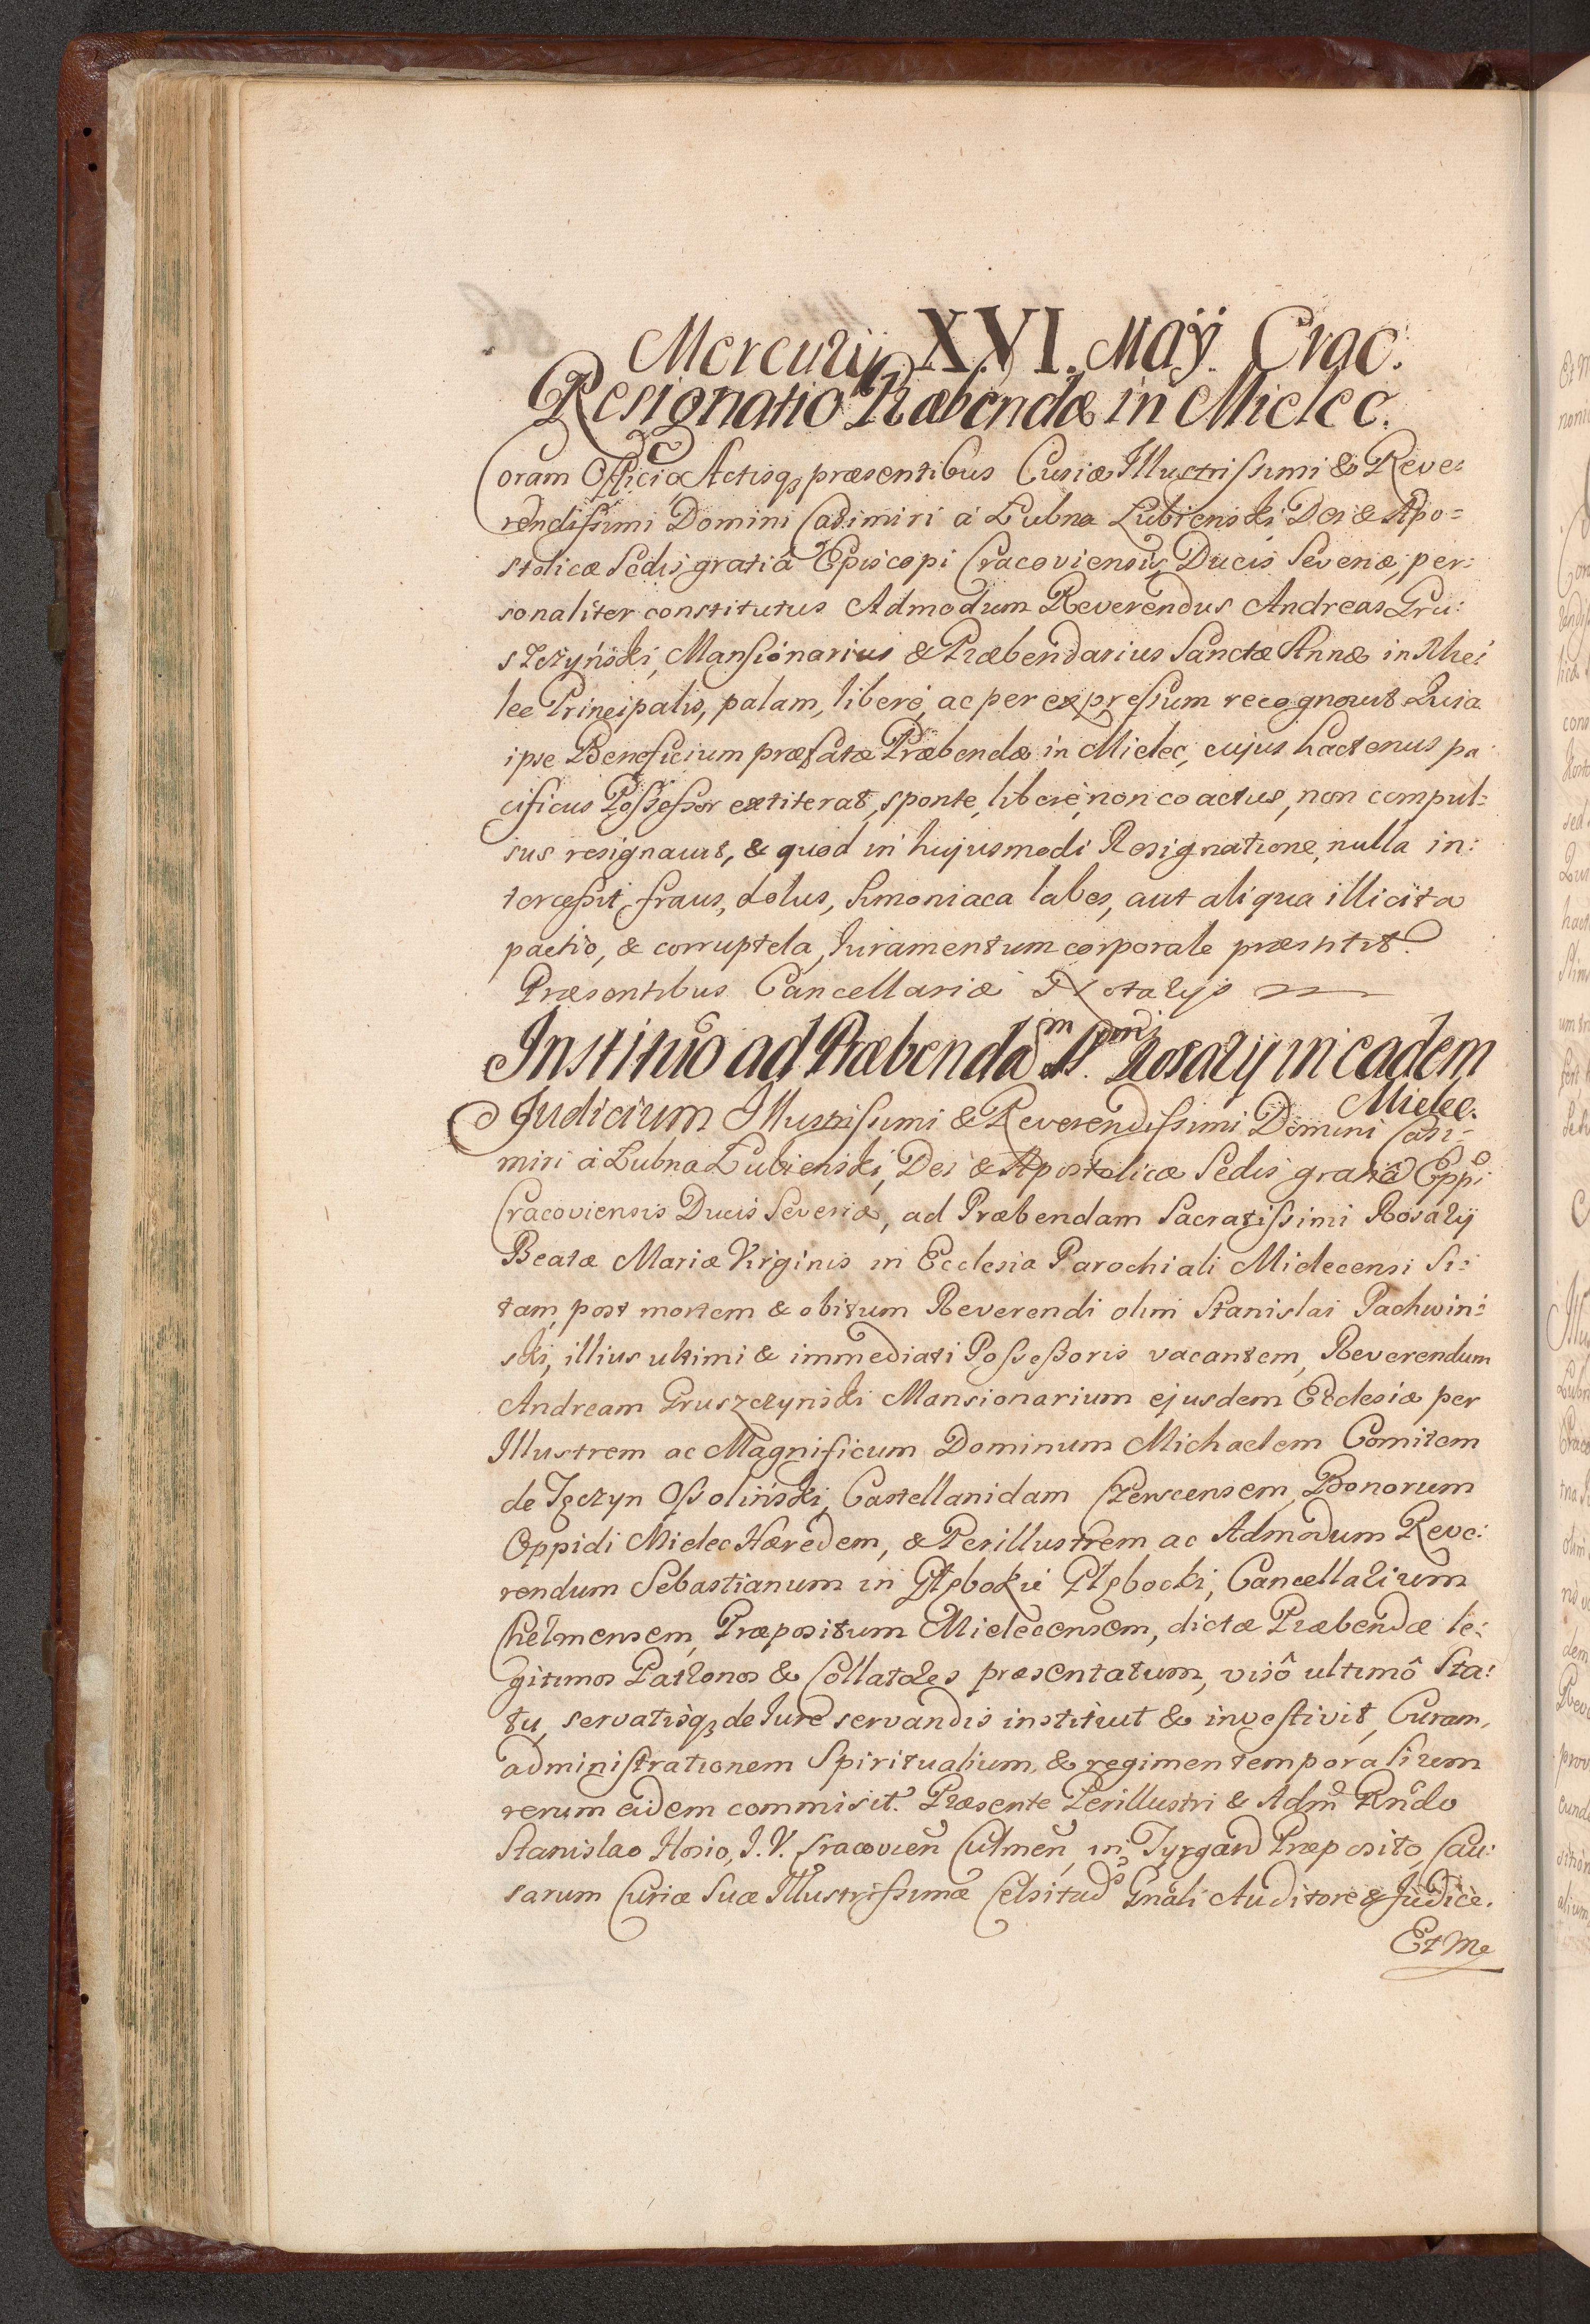 Mercurij XVI. Maÿ. Crac.
Resignatio Præbendæ in Mielec.
Coram Officio Actisq₃ præsentibus Curiæ Illustrissimi & Reve:
rendissimi Domini Casimiri à Łubna Łubienski Dei & Apo=
stolicæ Sedis gratiâ Episcopi Cracoviensis, Ducis Severiæ, per:
sonaliter constitutus Admodum Reverendus Andreas Gru:
szczyński, Mansionarius & Præbendarius Sanctæ Annæ in Mie:
lec Principalis, palam, liberè, ac per expressum recognovit Quia
ipse Beneficium præfatæ Præbendæ in Mielec, cujus hactenus pa
cificus Possessor extiterat, sponte, liberè, non coactus, non compul:
sus resignavit, & quod in hujusmodi Resignatione, nulla in:
tercessit fraus, dolus, Simoniaca labes, aut aliqua illicita
pactio, & corruptela, Iuramentum corporale præstitit.
Præsentibus Cancellariæ Notarijs
Institutio ad Præbendam SS. Rosarij in eadem
Mielec.
Judicium Illustrissimi & Reverendissimi Domini Casi:
miri à Łubna Łubienski, Dei & Apostolicæ Sedis gratiâ Eppi
Cracoviensis Ducis Severiæ, ad Præbendam Sacratissimi Rosarij
Beatæ Mariæ Virginis in Ecclesia Parochiali Mielecensi Si:
tam, post mortem & obitum Reverendi olim Stanislai Pachwin:
ski, illius ultimi & immediati Possessoris vacantem, Reverendum
Andream Gruszczyniski Mansionarium ejusdem Ecclesiæ per
Illustrem ac Magnificum Dominum Michaelem Comitem
de Tęczyn Ossoliński, Castellanidam Czerscensem, Bonorum
Oppidi Mielec Hæredem, & Perillustrem ac Admodum Reve:
rendum Sebastianum in Głębokie Głębocki, Cancellarium
Chelmensem, Præpositum Mielecensem, dictæ Præbendæ le:
gitimos Patronos & Collatores præsentatum, visô ultimô Sta:
tu, servatisq₃ de Iure servandis instituit & investivit, Curam,
administrationem Spiritualium, & regimen temporalium
rerum eidem commisit. Præsente Perillustri & Adm̃ Rñdo
Stanislao Hosio, I.V. Cracovień Culmeń, in Tyrgard Præposito, Cau:
sarum Curiæ Suæ Illustrissimæ Celsitud Gnãli Auditore & Judice.
Et Me